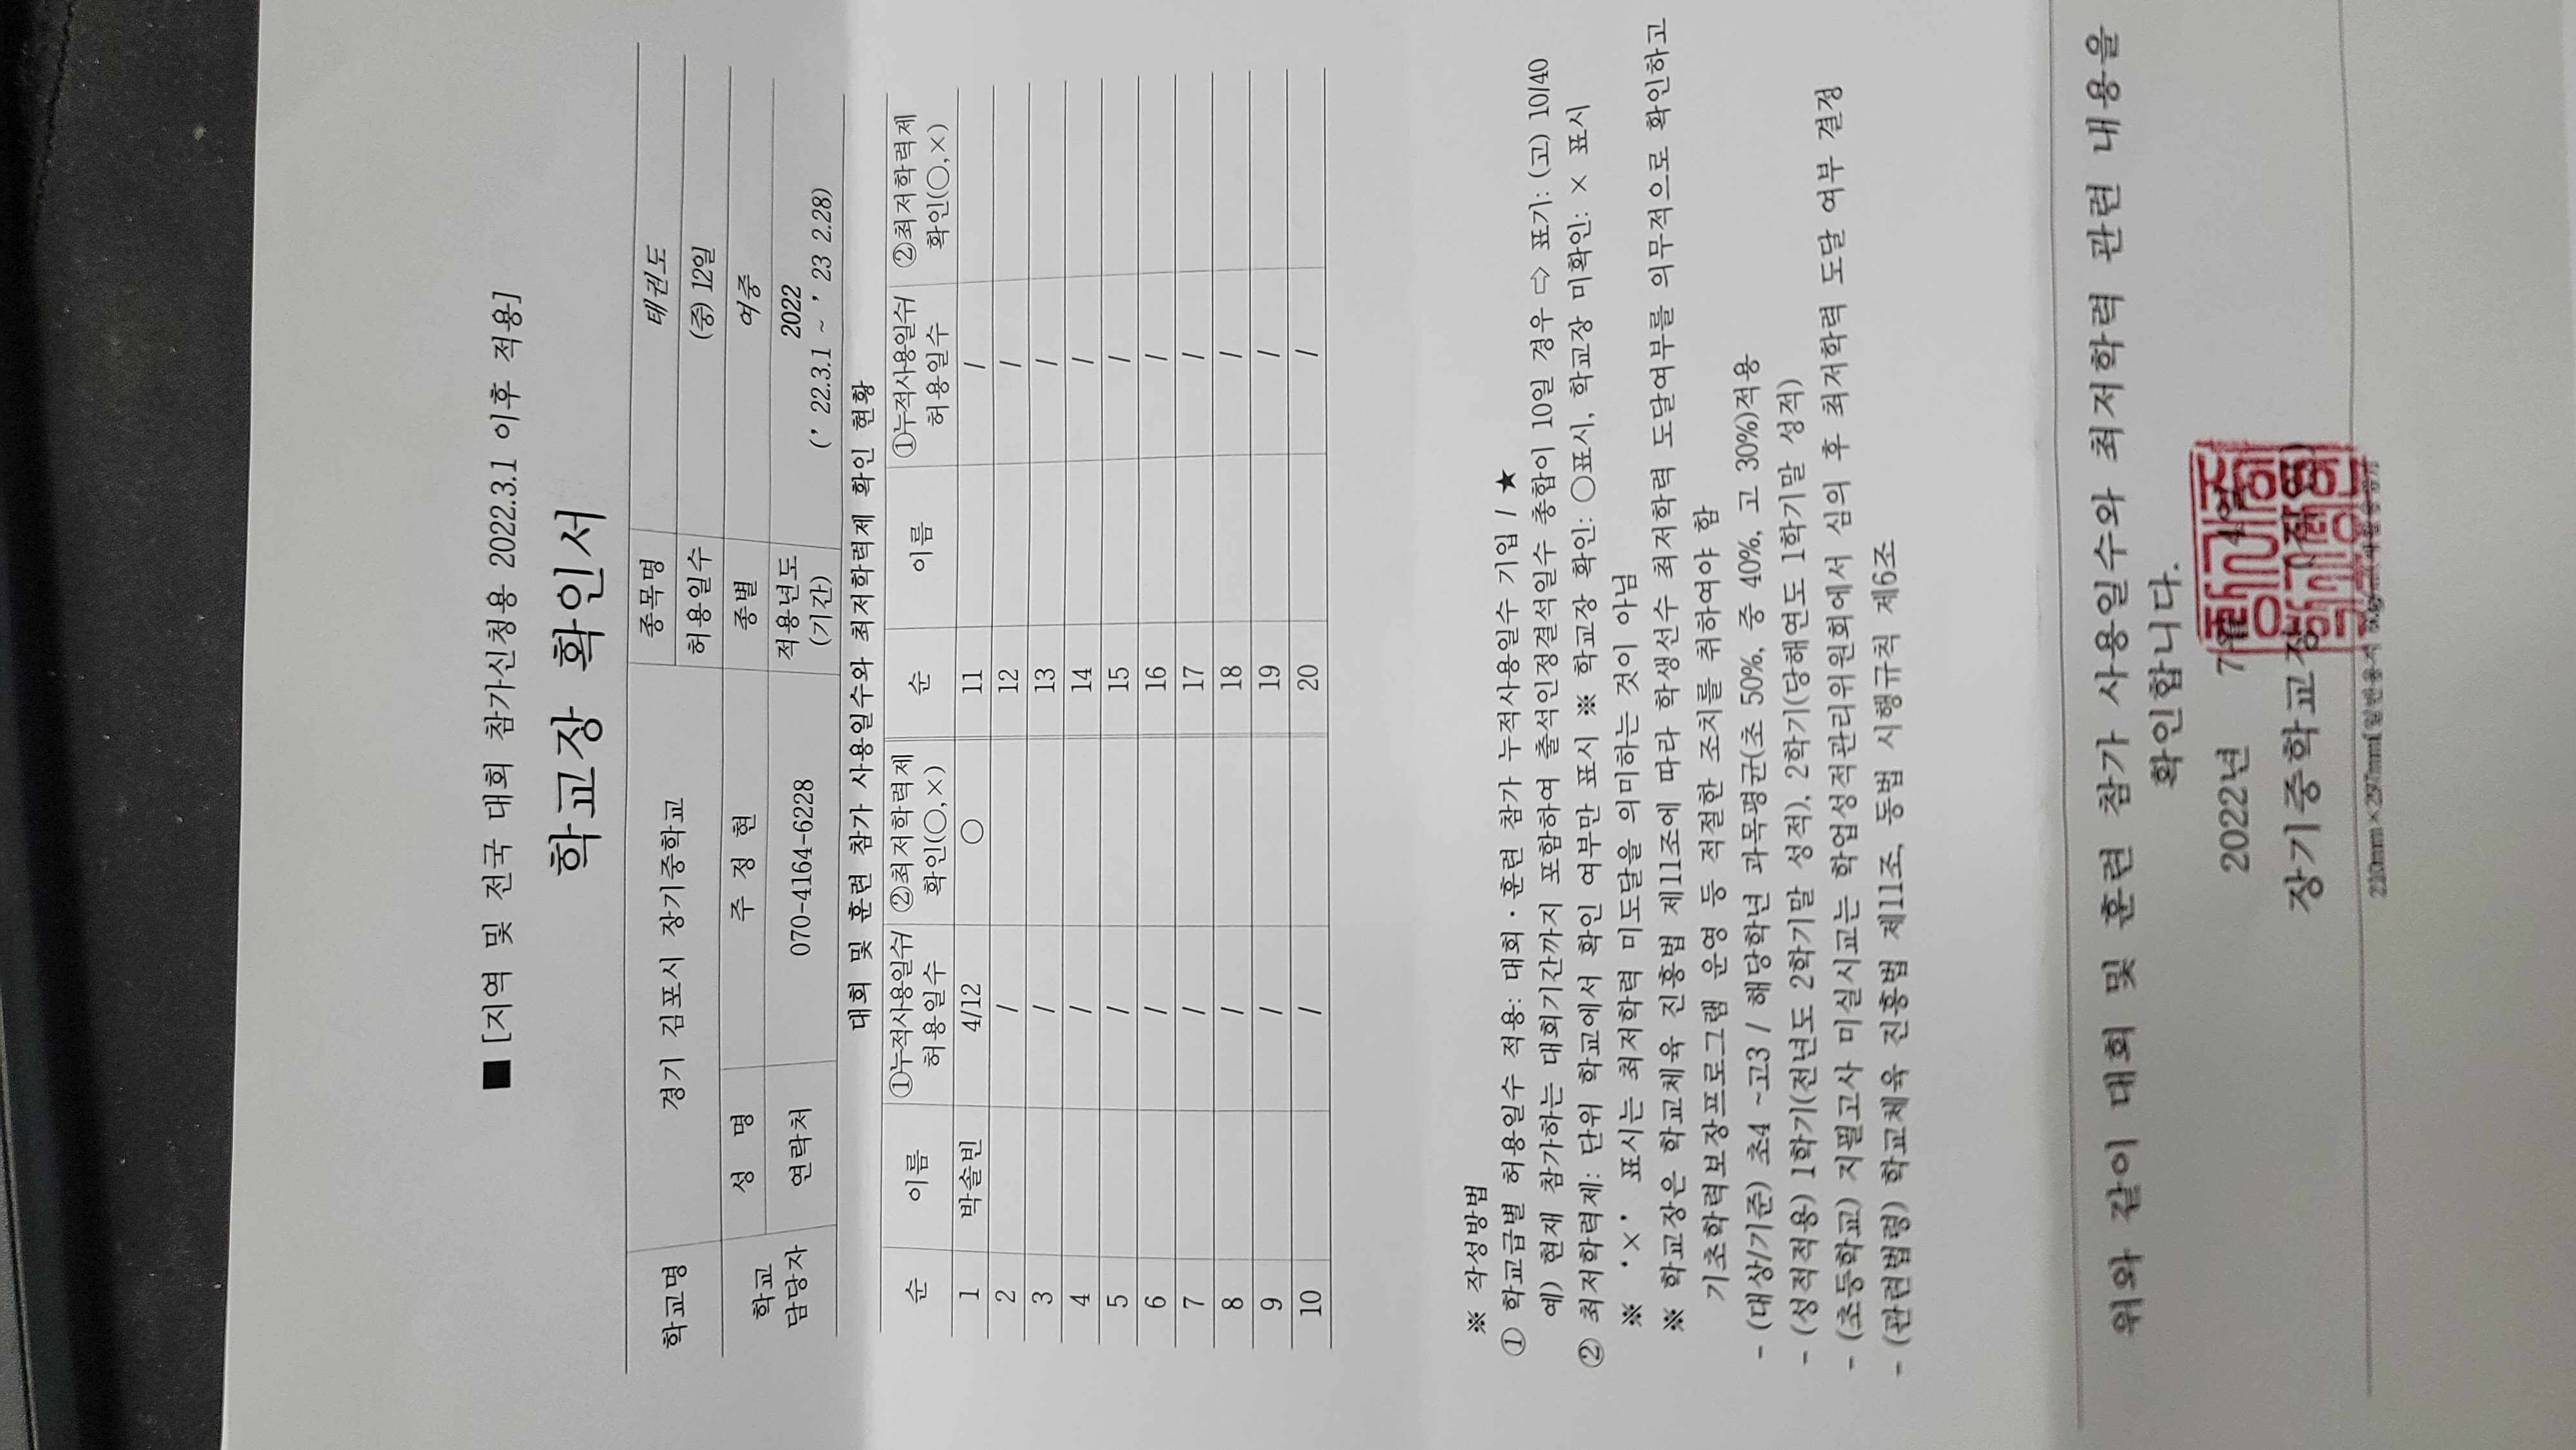 ■ [지역 및 전국 대회 참가신청용 2022.3.1 이후 적용]
학교장 확인서
학교명 경기 김포시 장기중학교 종목명 태권도
허용일수 (중) 12일
학교 담당자 성 명 주 정 현 종별 여중
연락처 070-4164-6228 적용년도 (기간) 2022
(' 22.3.1 ~ ' 23 2.28)
대회 및 훈련 참가 사용일수와 최저학력제 확인 현황
순 이름 ①누적사용일수/ 허용일수 ②최저학력제 확인(○,×) 순 이름 ①누적사용일수/ 허용일수 ②최저학력제 확인(○,×)
1 박솔빈 4/12 ○ 11 /
2 / 12 /
3 / 13 /
4 / 14 /
5 / 15 /
6 / 16 /
7 / 17 /
8 / 18 /
9 / 19 /
10 / 20 /
※ 작성방법
① 학교급별 허용일수 적용: 대회·훈련 참가 누적사용일수 기입 / ★
예) 현재 참가하는 대회기간까지 포함하여 출석인정결석일수 총합이 10일 경우 ⇨ 표기: (고) 10/40
② 최저학력제: 단위 학교에서 확인 여부만 표시 ※ 학교장 확인: ○표시, 학교장 미확인: × 표시
※ '×' 표시는 최저학력 미도달을 의미하는 것이 아님
※ 학교장은 학교체육 진흥법 제11조에 따라 학생선수 최저학력 도달여부를 의무적으로 확인하고
기초학력보장프로그램 운영 등 적절한 조치를 취하여야 함
- (대상/기준) 초4 ~고3 / 해당학년 과목평균(초 50%, 중 40%, 고 30%)적용
- (성적적용) 1학기(전년도 2학기말 성적), 2학기(당해연도 1학기말 성적)
- (초등학교) 지필고사 미실시교는 학업성적관리위원회에서 심의 후 최저학력 도달 여부 결정
- (관련법령) 학교체육 진흥법 제11조, 동법 시행규칙 제6조
위와 같이 대회 및 훈련 참가 사용일수와 최저학력 관련 내용을
확인합니다.
2022년 7월 4일
장기중학교장
210mm×297mm(일반용지